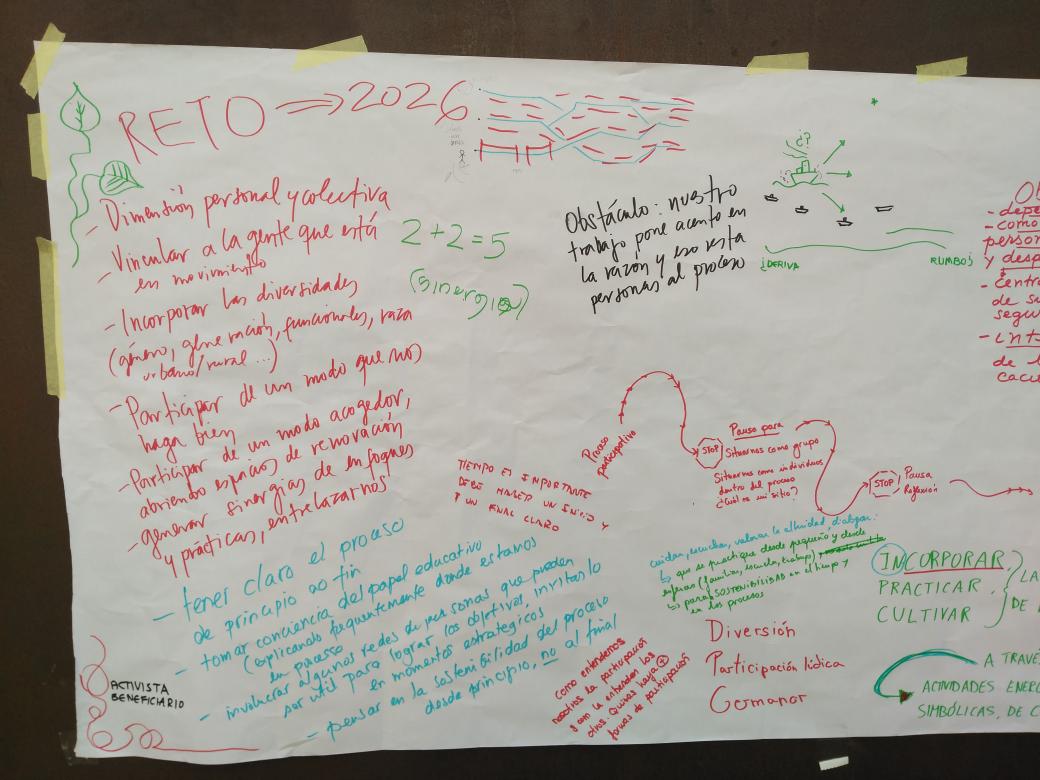 RETO ⇒ 2026
- Dimensión personal y colectiva
- Vincular a la gente que está
en movimiento
- Incorporar las diversidades
(género, generación, funcionales, raza
urbano/rural ...)
- Participar de un modo que nos
haga bien
- Participar de un modo acogedor,
abriendo espacios de renovación
- generar sinergias de enfoques
y prácticas, entrelazarnos
2+2=5
(sinergia)
Obstáculo: nuestro
trabajo pone acento en
la razón y eso resta
personas al proceso
¿?
¿DERIVA
RUMBO?
- depe
- como
person
y desp
- Centra
de su
segu
- inta
de l
caci
Proceso
participativo
STOP
Pausa para
Situarnos como grupo
Situarnos como individuos
dentro del proceso
¿Cuál es mi sitio?
STOP
Pausa
Reflexión
TIEMPO ES IMPORTANTE
DEBE HABER UN INICIO Y
Y UN FINAL CLARO
- tener claro el proceso
de principio a fin
- tomar conciencia del papel educativo
(explicando frecuentemente donde estamos
en proceso
- involucrar algunos redes de personas que pueden
ser util para lograr los objetivos, invitarlo
en momentos estrategicos
- pensar en la sostenibilidad del proceso
desde principio, no al final
ACTIVISTA
BENEFICIARIO
cuidar, escuchar, valorar la alteridad, dialogar:
↳ que se practique desde pequeño y desde
esferas (familias, escuela, trabajo)
↳ para SOSTENIBILIDAD en el tiempo y
en los procesos
como entendemos
nosotros la participación
y como la entienden los
otros. Quizas haya +
formas de participación
INCORPORAR
PRACTICAR
CULTIVAR
LA
DE
Diversión
Participación lúdica
Germanor
A TRAVÉ
ACTIVIDADES ENERG
SIMBÓLICAS, DE C